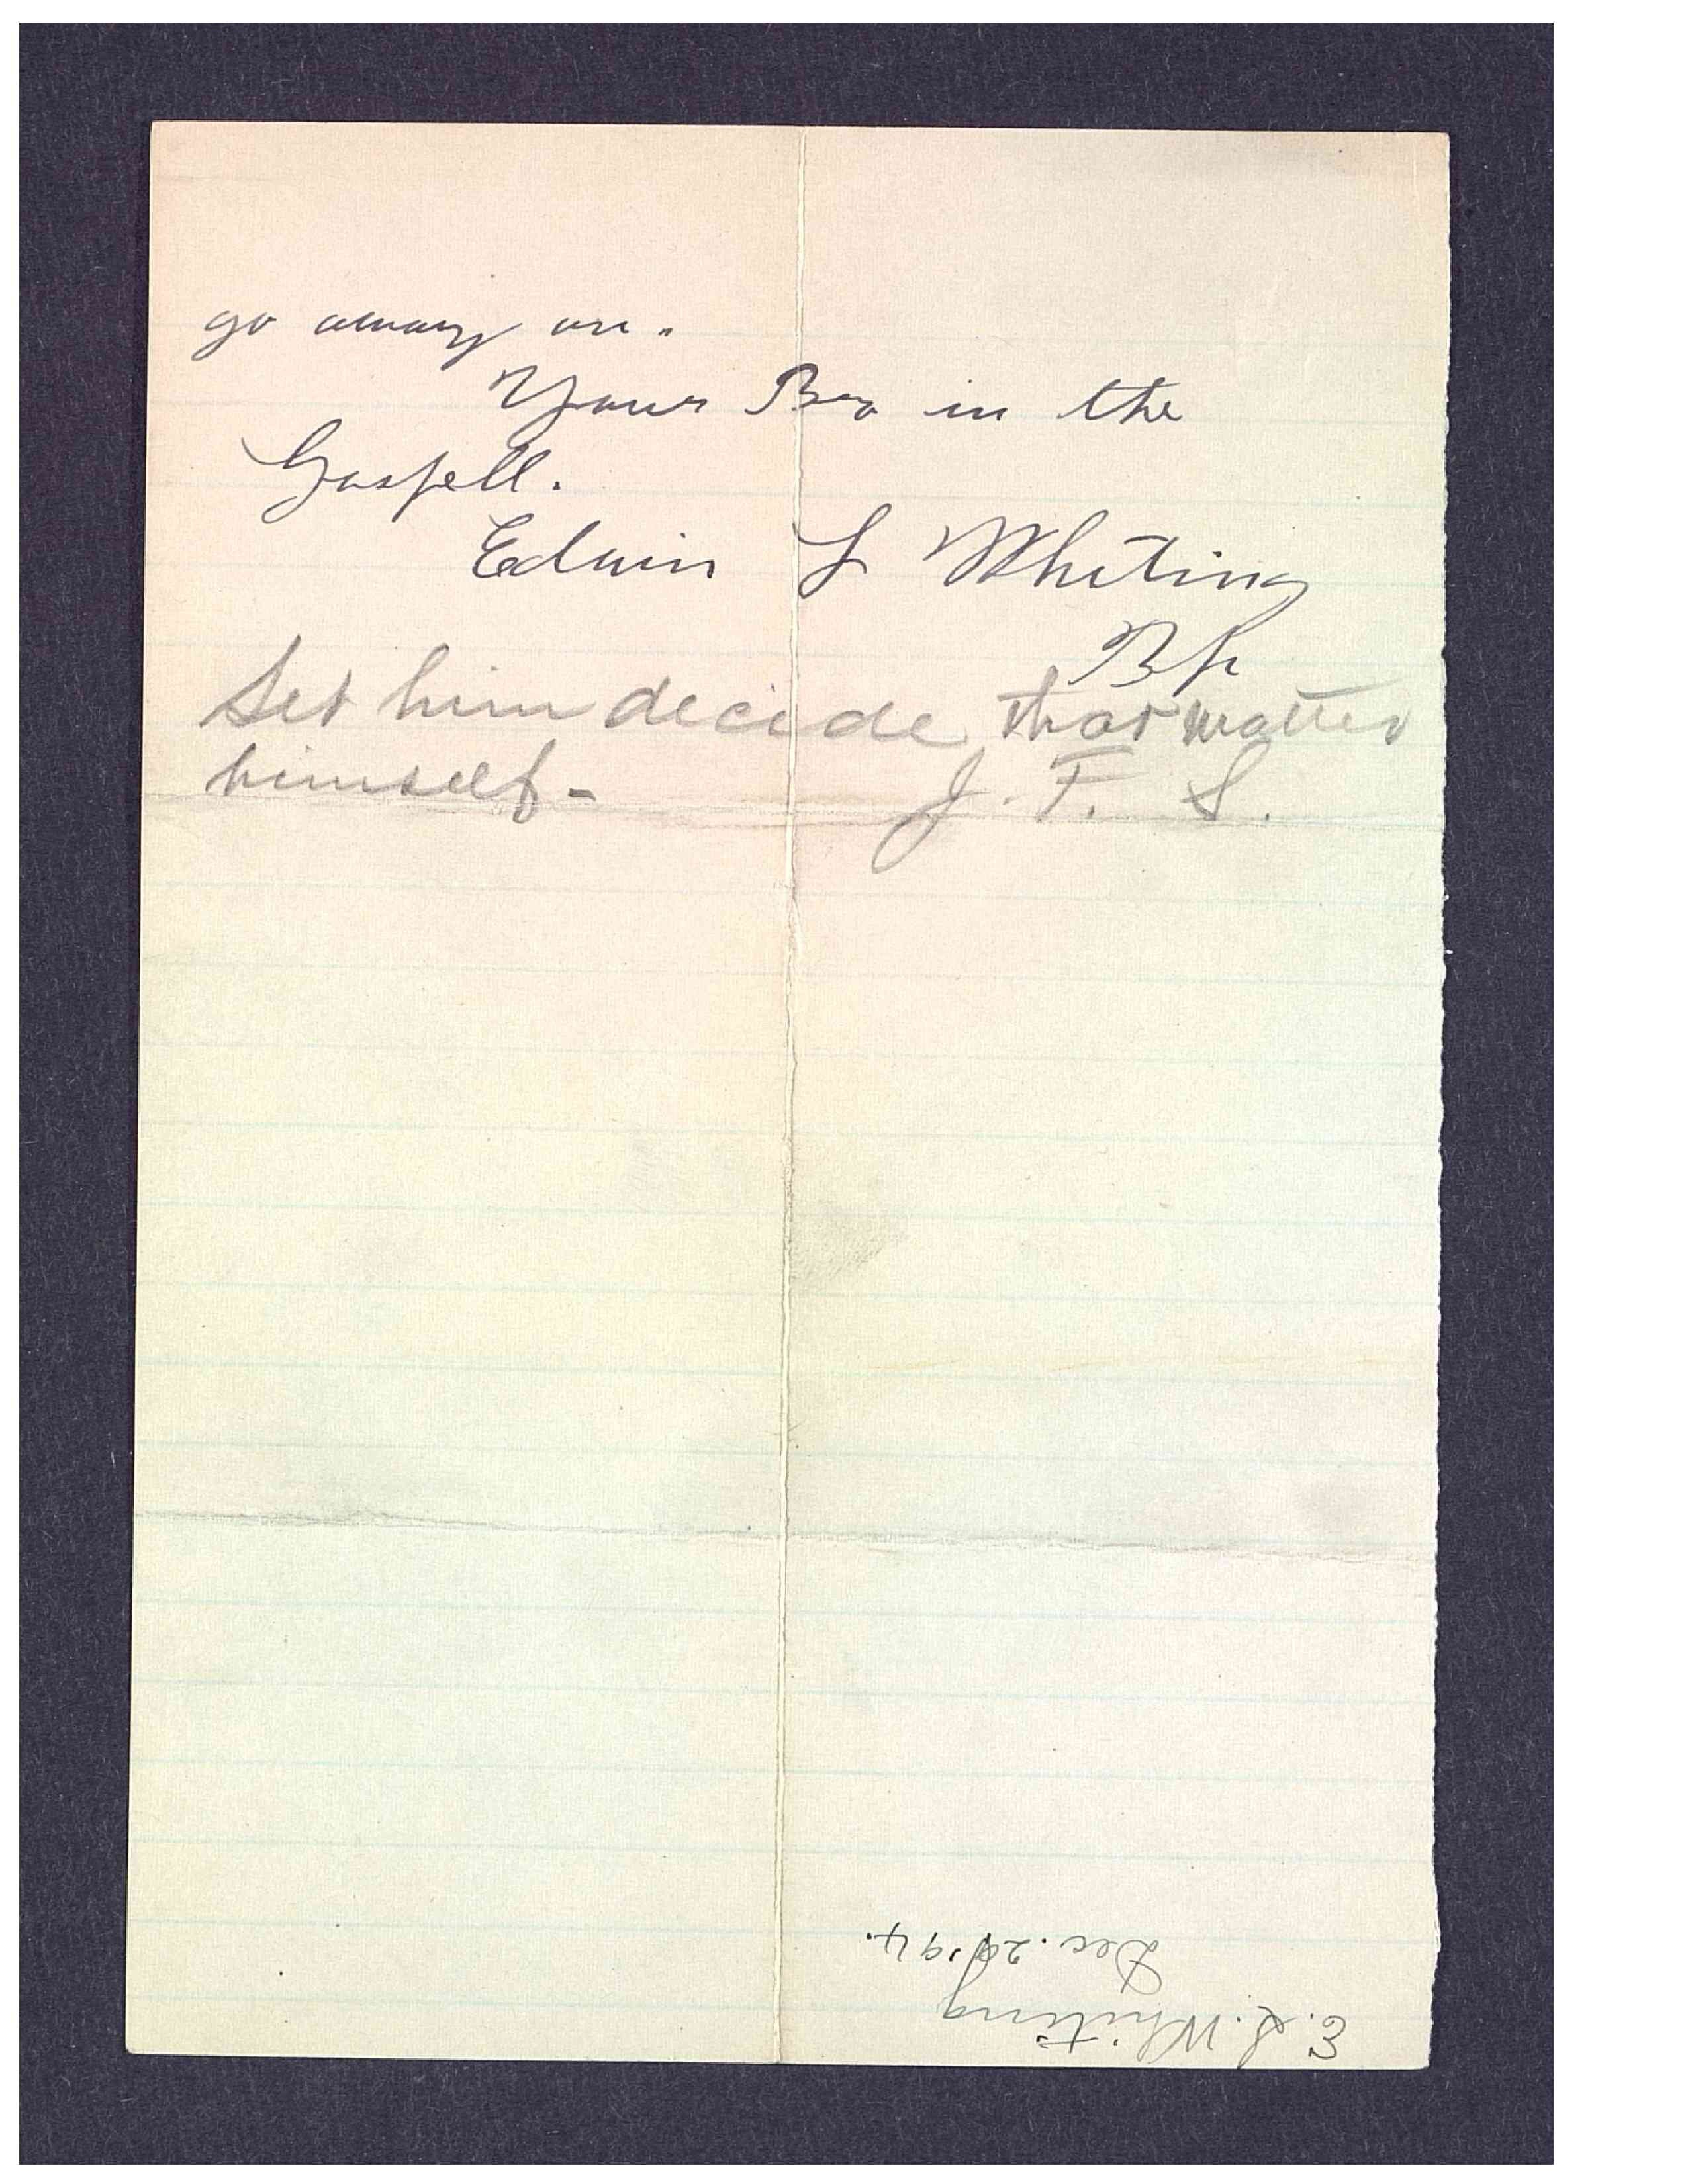 go away on.
Your Bro in the
Gospell.
Edwin L Whiting
Bp
Let him decide that matter
himself-
J. F. S.
E. L. Whiting
Dec. 94.